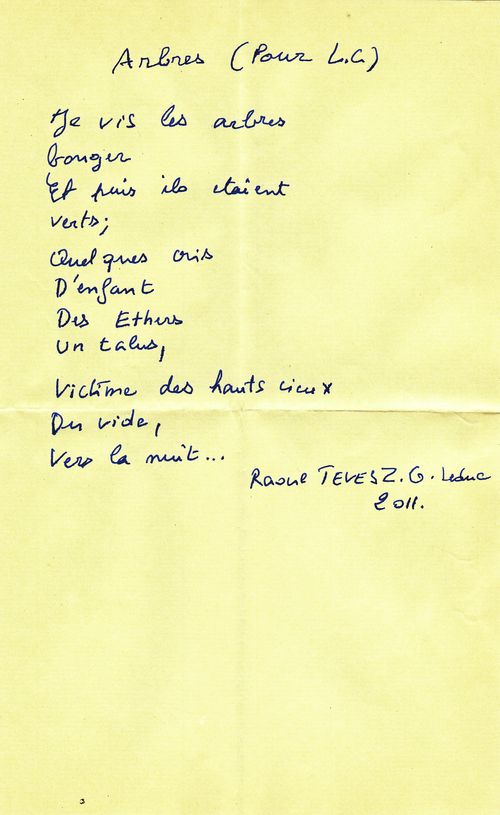 Arbres (Pour L.C.)
Je vis les arbres
bouger
Et puis ils étaient
verts;
Quelques cris
D'enfant
Des Ethers
un talus,
Victime des hauts cieux
Du vide,
Vers la nuit...
Raoul TEVES Z. G. Leduc
2011.
3